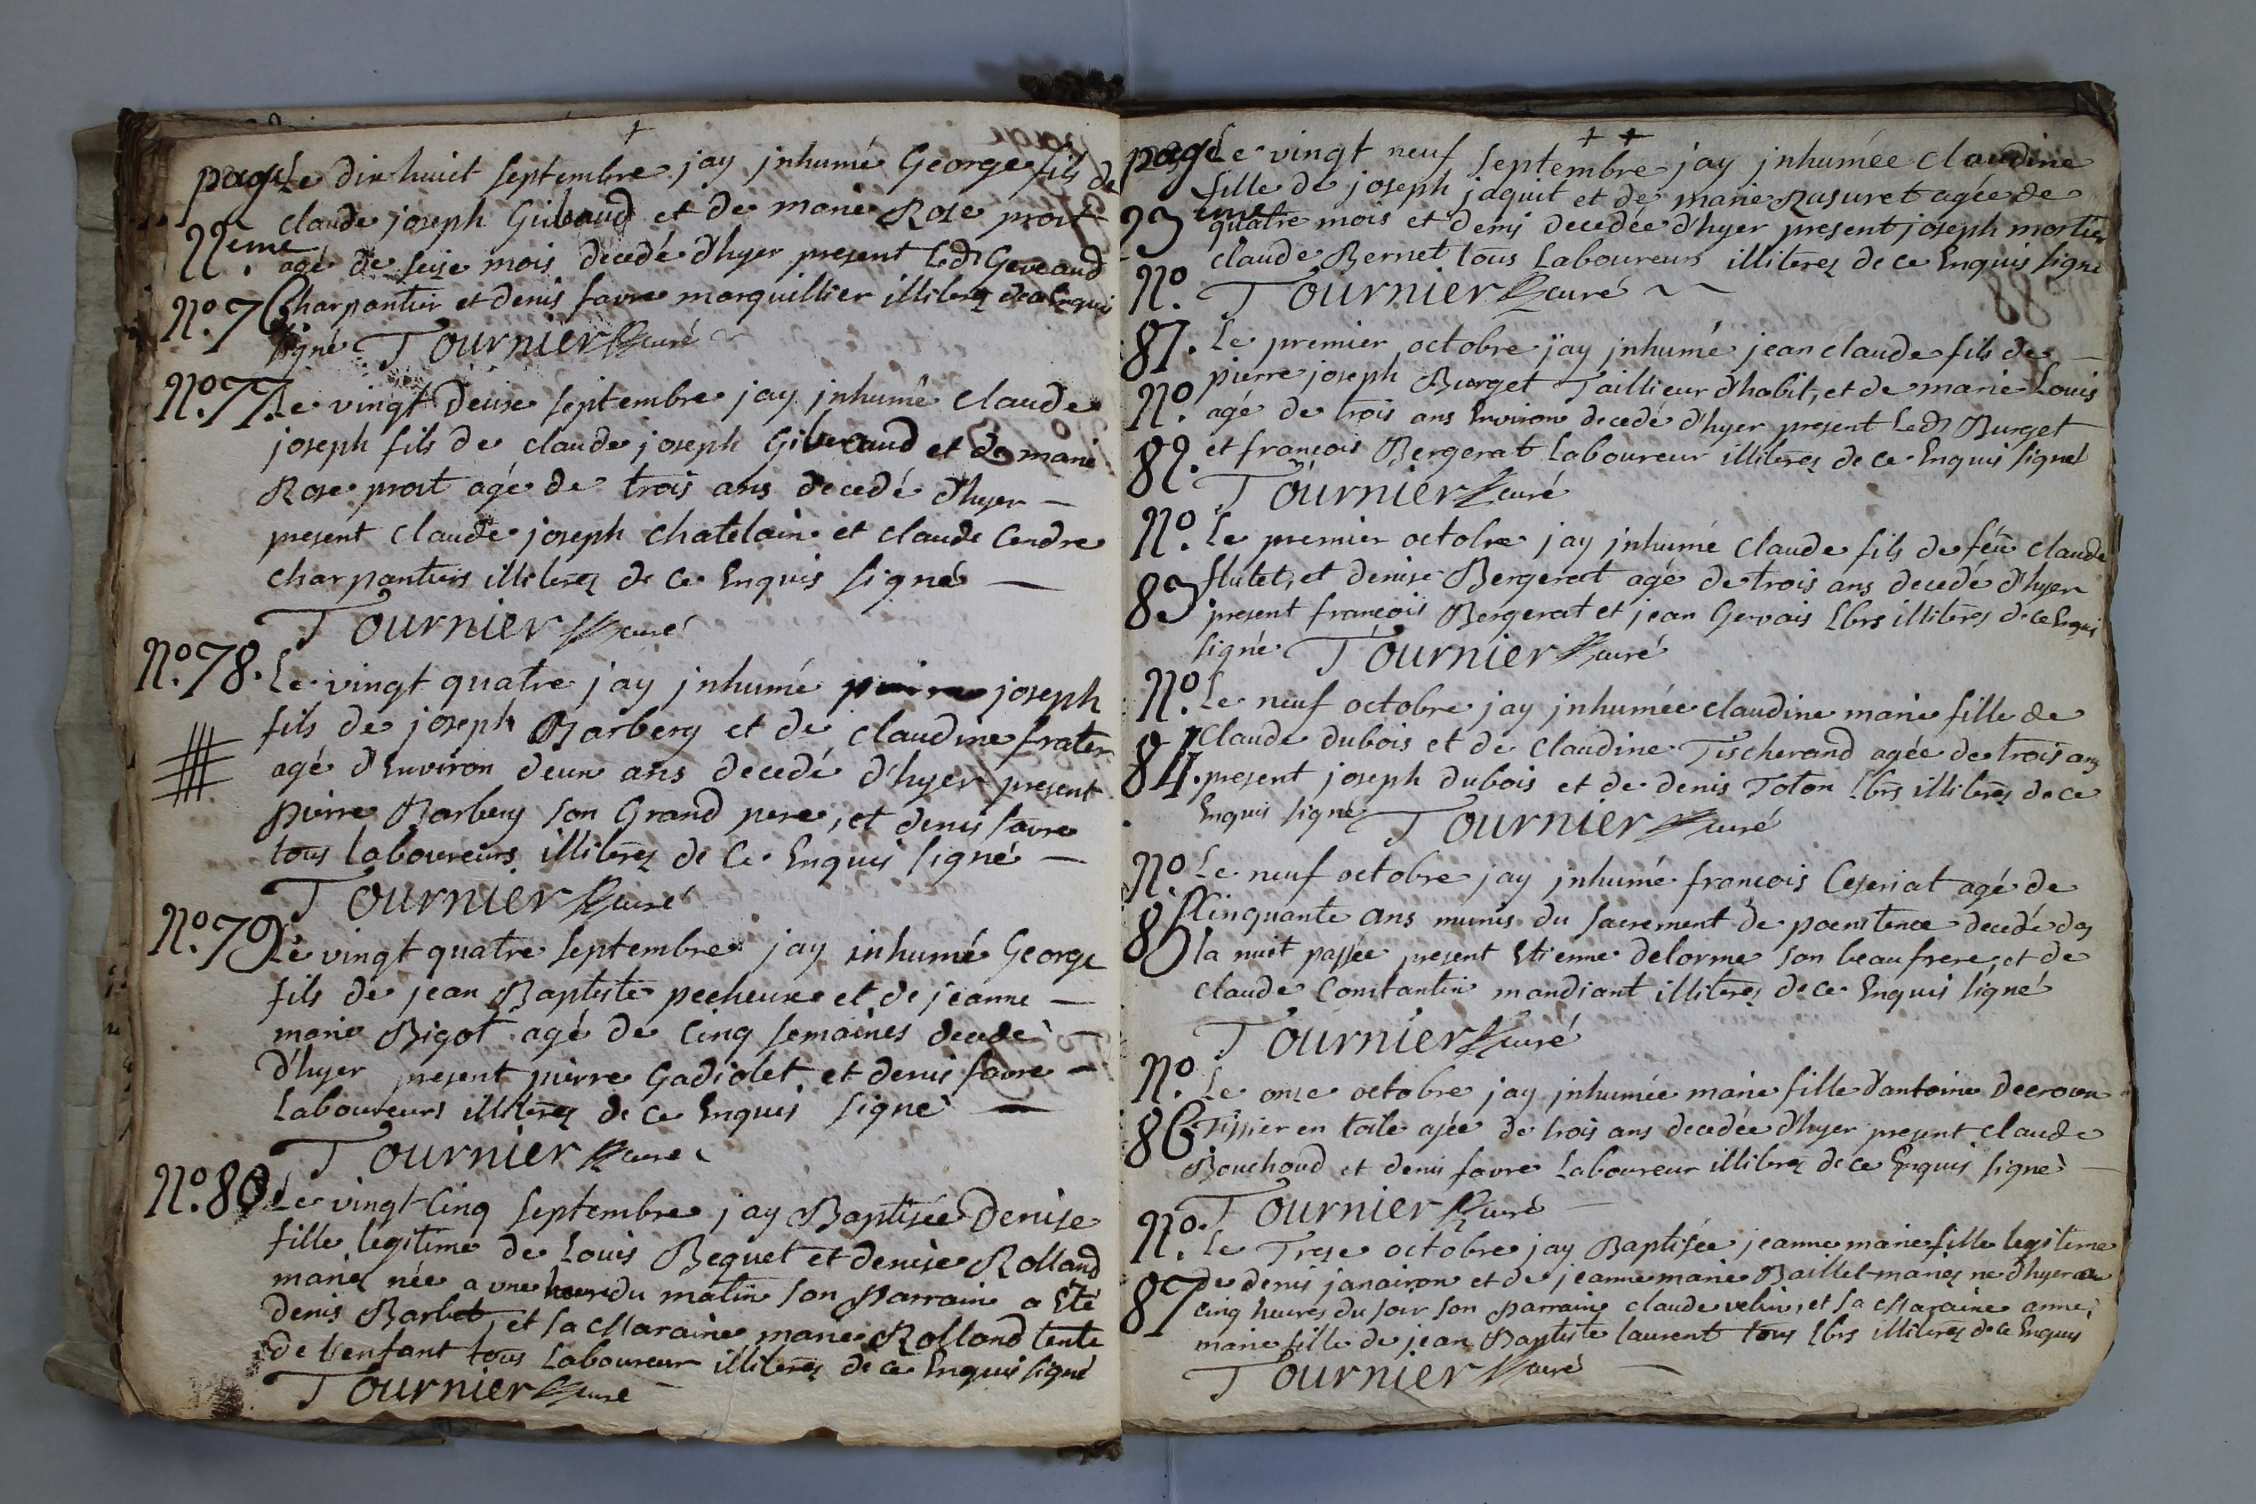 page Le dix huict septembre jay jnhumé George fils de
22eme claude joseph Giberaud et de marie Rose prost
agé de seize mois decedé d'hyer present Led Geveaud
No. 76 Charpantier et denis favre marquillier illiterez de ce Enquis
signé Tournier curé
No. 77. Le vingt deuxe septembre jay jnhumé claude
joseph fils de claude joseph Giberaud et de marie
Rose prost agé de trois ans decedé d'hyer —
present claude joseph chatelain et claude Cendre
charpantiers illiterez de ce Enquis signé —
Tournier curé
No. 78. Le vingt quatre j'ay jnhumé joseph
fils de joseph Barbery et de claudine frater
agé d'Environ deux ans decedé d'hyer present
pierre Barbery son Grand pere, et denis favre
tous laboureurs illiterez de Ce Enquis signé —
Tournier curé
No. 79 Le vingt quatre septembre jay inhumé George
fils de jean Baptiste pecheure et de jeanne —
marie Bigot agé de Cinq semaines decedé
d'hyer present pierre Gadiolet et denis favre —
Laboureurs illiterez de ce Enquis signé —
Tournier curé
No. 80. Le vingt Cinq septembre jay Baptisée Denise
fille legitime de Louis Bequet et denise Rolland
mariez née a une heure du matin son Parrain a Eté
denis Barbet, et sa Maraine marie Rolland tente
de l'enfant tous Laboureur illiterez de ce Enquis signé
Tournier curé
page Le vingt neuf septembre jay jnhumée claudine
fille de joseph jaquit et de marie Rasuret agée de
23eme quatre mois et demis decedée d'hyer present joseph mortier
claude Bernet tous Laboureurs illiterez de ce Enquis signé
No. Tournier curé
81. Le premier octobre jay jnhumé jean claude fils de —
pierre joseph Burget Taillieur d'habit, et de marie Louis
No. agé de trois ans Environ decedé d'hyer present Led Burget
82. et françois Bergerat Laboureur illiterez de ce Enquis signé
Tournier curé
No. Le premier octobre jay jnhumé claude fils de feu claude
83 flutet, et denise Bergerat agé de trois ans decedé d'hyer
present françois Bergerat et jean Gervais Lbrs illiterez de ce Enquis
signé Tournier curé
No. Le neuf octobre jay jnhumée claudine marie fille de
84. Claude dubois et de Claudine Tischerand agée de trois ans
present joseph dubois et de denis Toton Lbrs illiterez de ce
Enquis signé Tournier curé
No. Le neuf octobre jay jnhumé françois Ceseriat agé de
85 Cinquante ans munis du sacrement de poenitence decedé des
la nuit passée present Etienne delorme son beaufrere, et de
claude Constantin mandiant illiterez de ce Enquis signé
Tournier curé
No. Le onze octobre jay jnhumée marie fille d'antoine Decroun
86 Tissier en toile agée de trois ans decedée d'hyer present claude
Bouchoud et denis favre Laboureur illiterez de ce Enquis signé —
Tournier curé
No. Le Treze octobre jay Baptisée jeanne marie fille legitime
87 de denis janairon et de jeanne marie Baillet mariez ne d'hyer a
cinq heures du soir son Parrain claude velin, et sa Maraine anne
marie fille de jean Baptiste laurent tous Lbrs illiterez de ce Enquis
Tournier curé